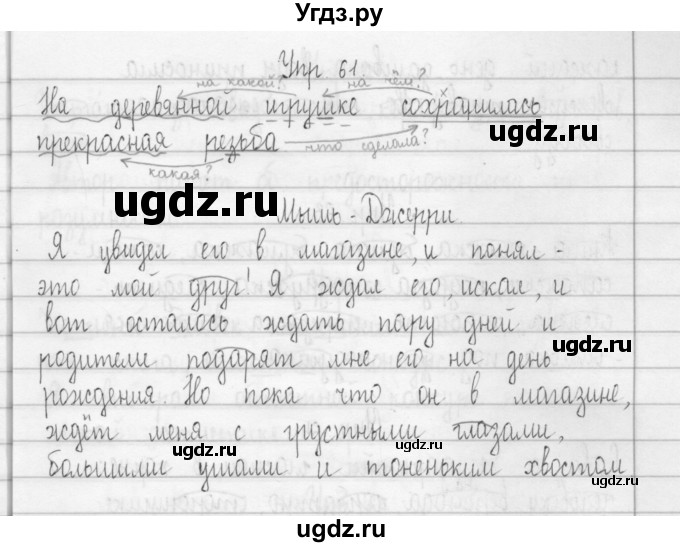 Угдз.ру
Упр 61.
на какой? на чём?
На деревянной игрушке сохранилась
прекрасная резьба что сделала?
какая?
ugdz.ru
ugdz.ru
Мышь - Джерри.
Я увидел его в магазине, и понял -
это мой друг! Я ждал его искал, и
вот осталось ждать пару дней и
ugdz.ru
родители подарят мне его на день
рождения Но пока что он в магазине,
ugdz.ru
ждёт меня с грустными глазами,
большими ушами и тоненьким хвостом
ugdz.ru